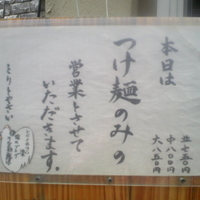 本日は
つけ麺のみの
営業とさせて
いただきます。
並七五〇円
中八〇〇円
大八五〇円